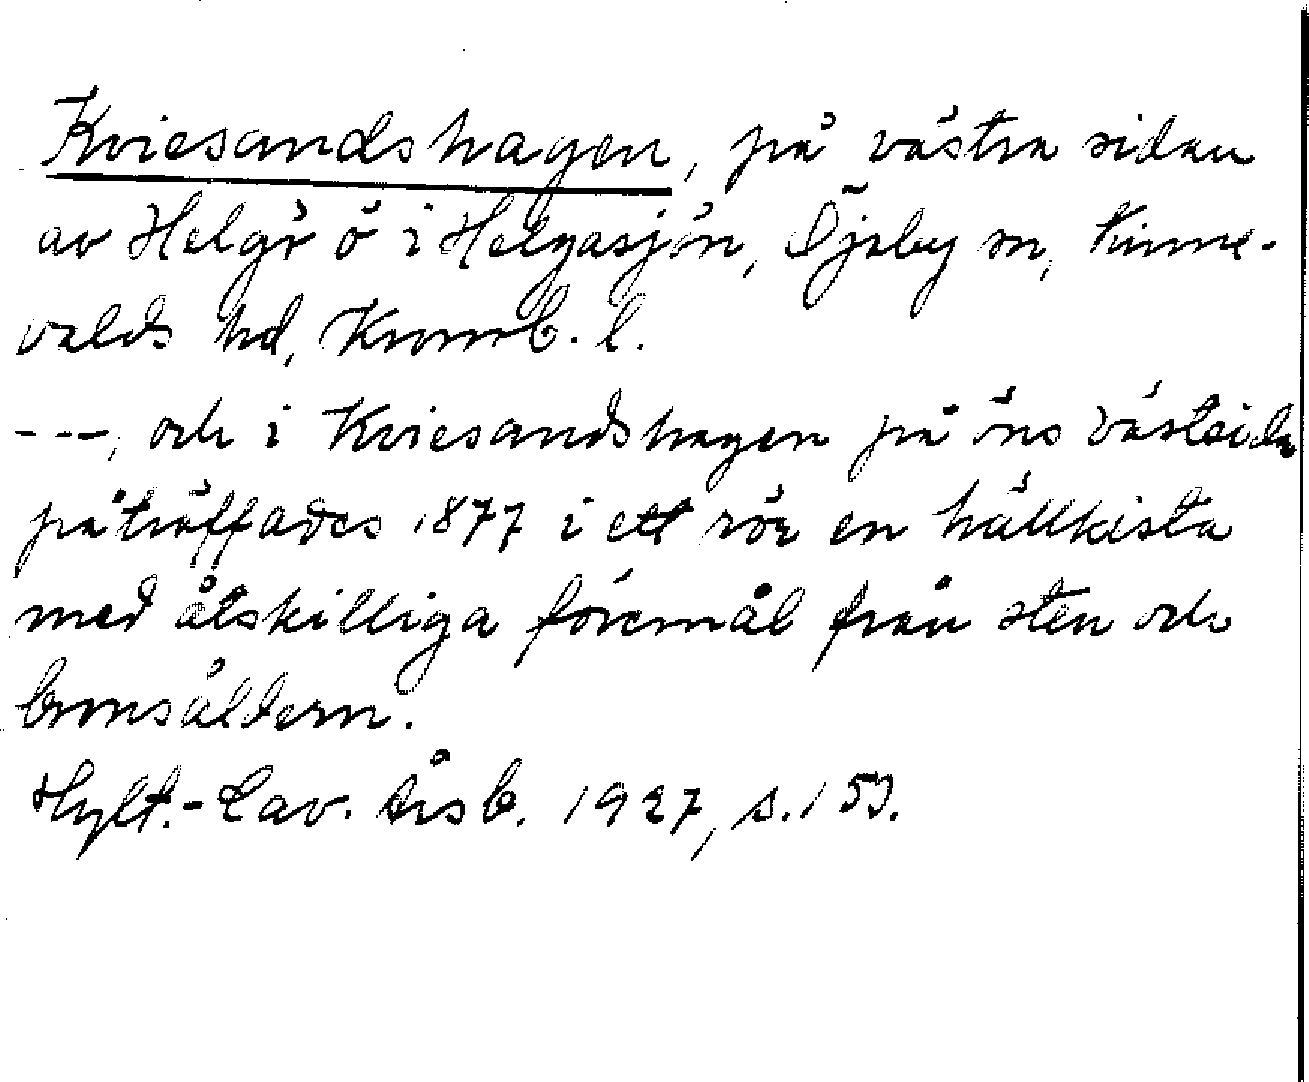 Kviesandshagen, på västra sidan
av Helgö ö i Helgasjön, Öjaby sn, Kinne-
valds hd, Kronob. l.
---, och i Kviesandshagen på öns västsida
påträffades 1877 i ett rör en hällkista
med åtskilliga föremål från sten och
bronsåldern.
Hylt.-Cav. Årsb. 1927, s. 153.